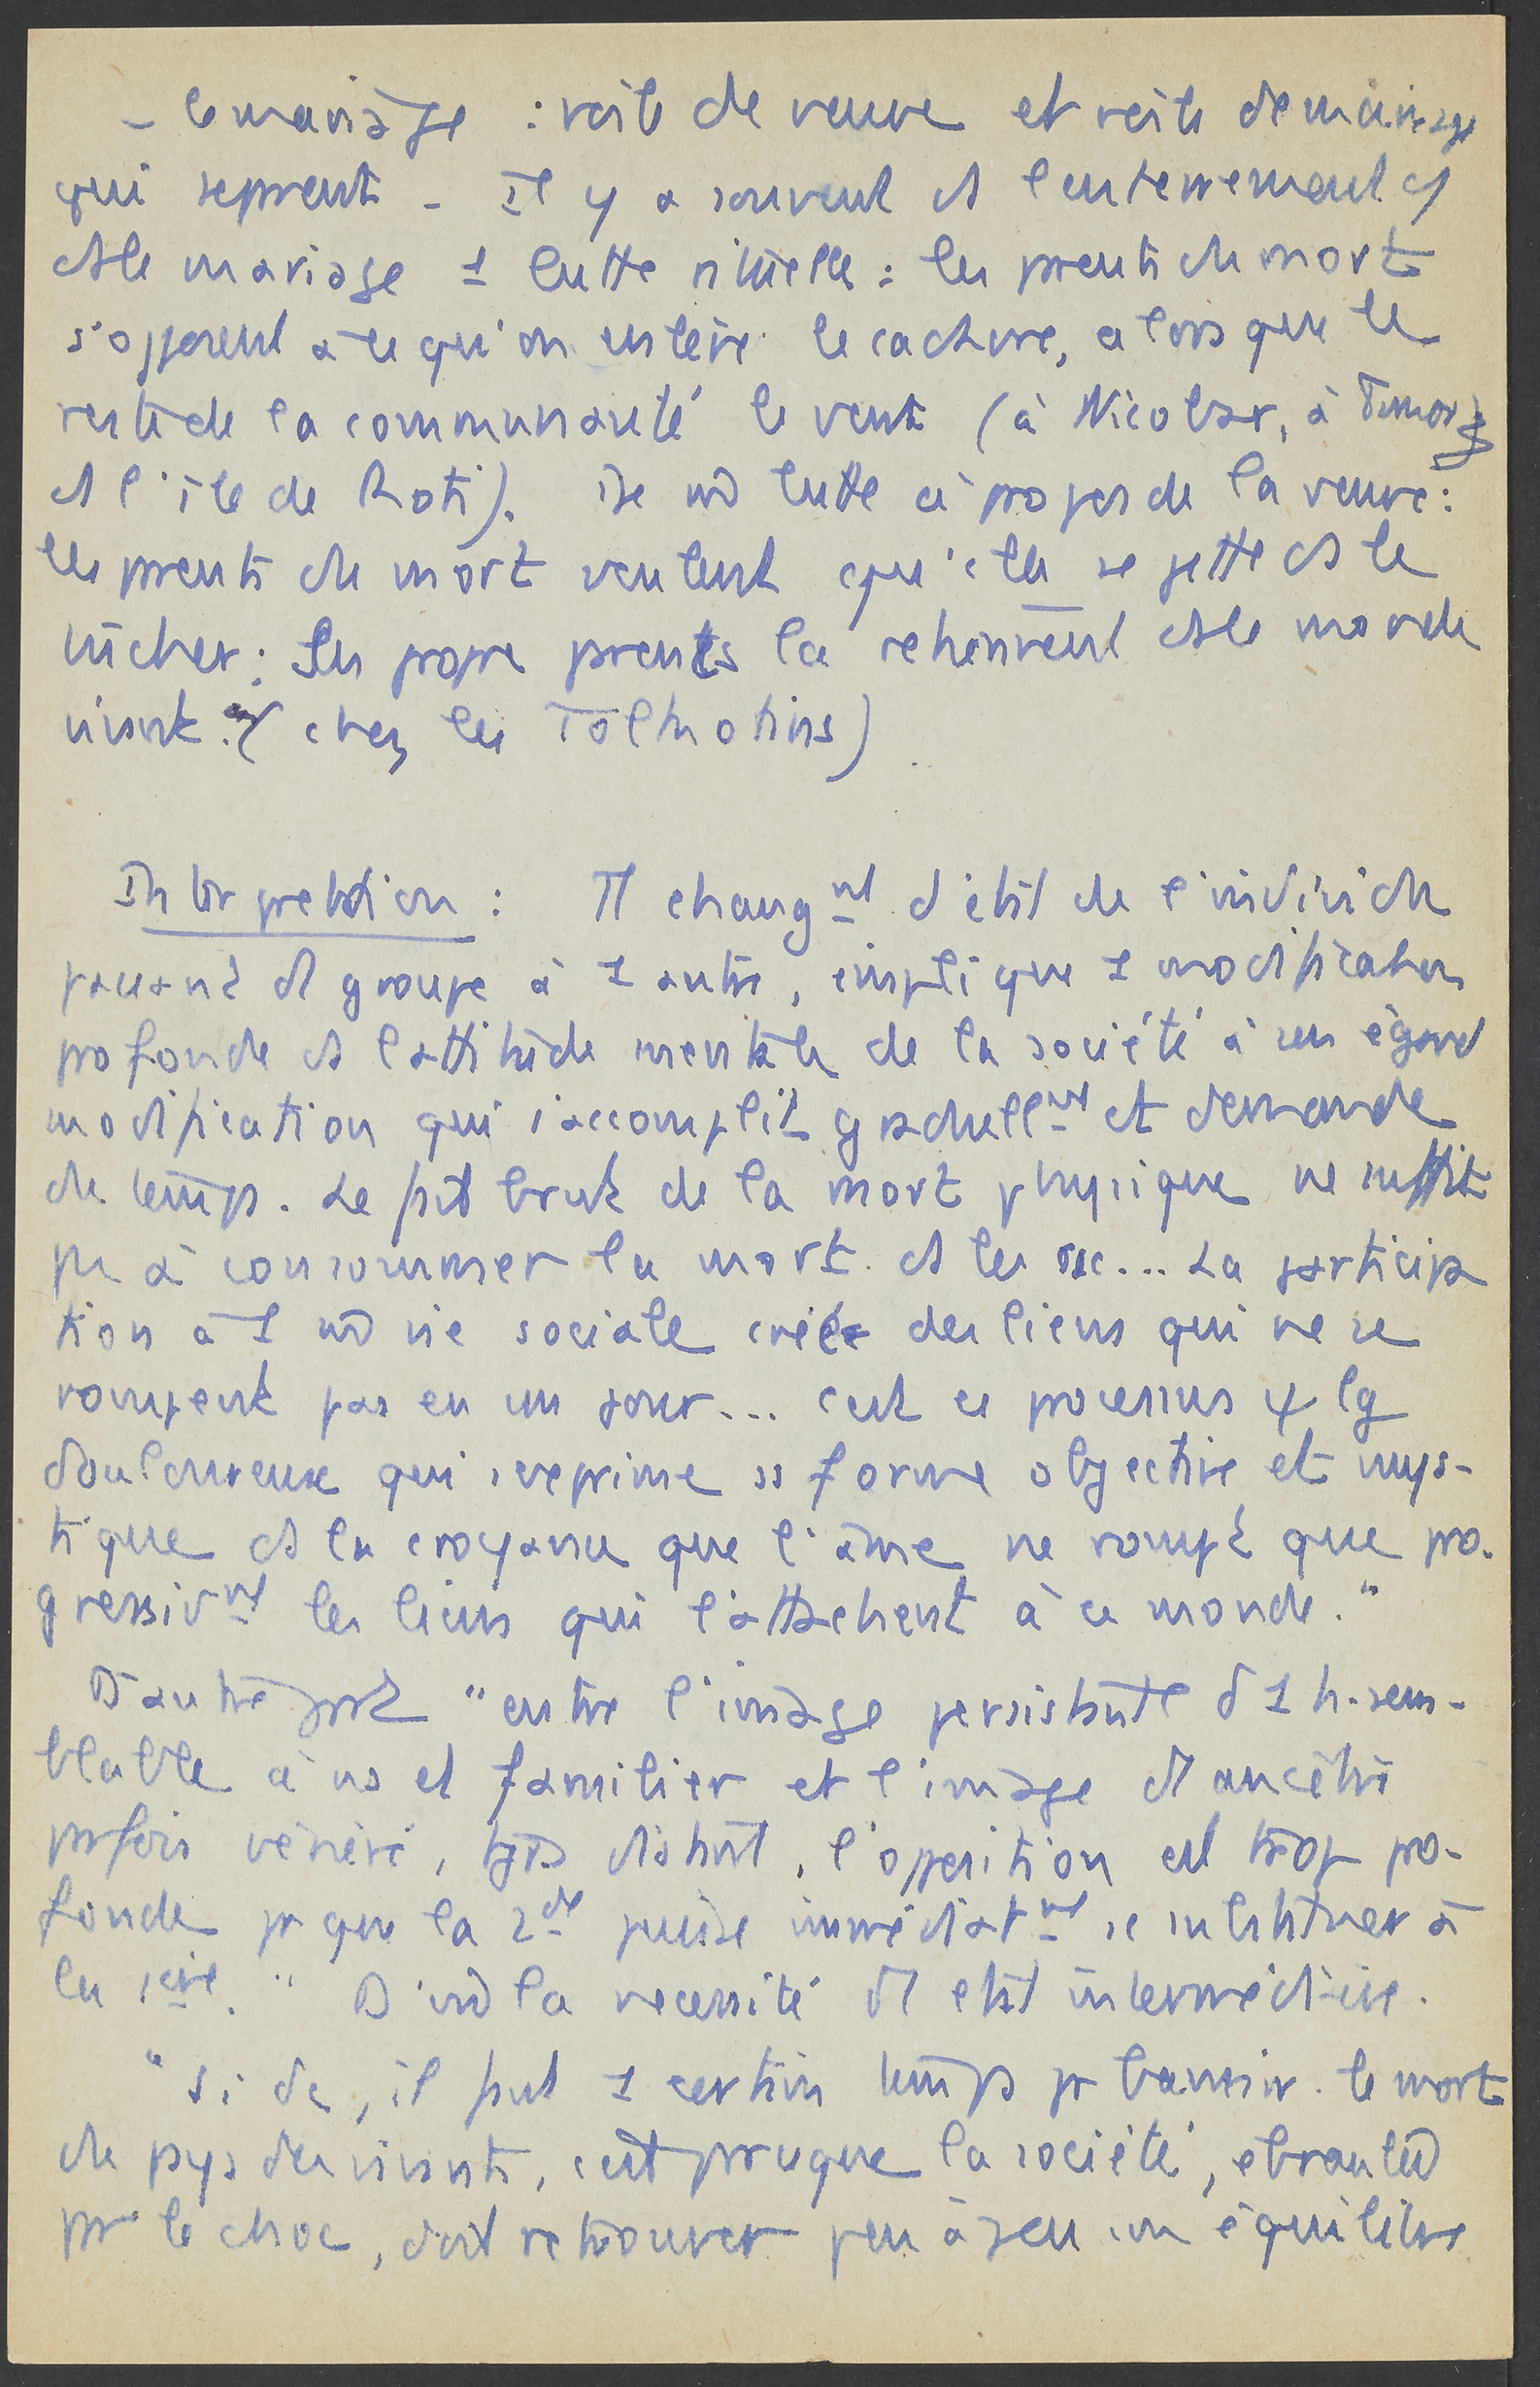 - le mariage : voile de veuve et voile de mariage
qui séprenti - Il y a souvent ds l'enterrement et
ds le mariage 1 lutte rituelle : les prents du mort
s'opposent à ce qu'on enlève le cadavre, alors que le
reste de la communauté le veut (à Nicobar, à Timor et
ds l'île de Roti). De mê lutte à propos de la veuve :
les prents du mort veulent qu'elle se jette ds le
bûcher : Les propres prents la retiennent ds le monde
vivant. (chez les Tolkotins)
Interprétation : Tt changnt d'état de l'individu
passant d1 groupe à 1 autre, implique 1 modification
profonde ds l'attitude mentale de la société à son égard
modification qui s'accomplit graduellnt et demande
du temps. Le fait brut de la mort physique ne suffit
pas à consommer la mort ds les csc... La participa
tion à 1 mê vie sociale crée des liens qui ne se
rompent pas en un jour... c'est ce processus
douloureux qui s'exprime ss forme objective et mys-
tique ds la croyance que l'âme ne rompt que pro-
gressivnt les liens qui l'attachent à ce monde."
D'autre part "entre l'image persistante d'1 h. sem-
blable à ns et familier et l'image d'1 ancêtre
prfois vénéré, tjrs distant, l'opposition est trop pro-
fonde pr que la 2de puisse immédiatnt se substituer à
la 1ère." D'où la nécessité d'1 état intermédiaire.
"Si dc, il faut 1 certain temps pr bannir le mort
du pays des vivants, c'est prcque la société, ébranlée
pr le choc, doit retrouver peu à peu son équilibre